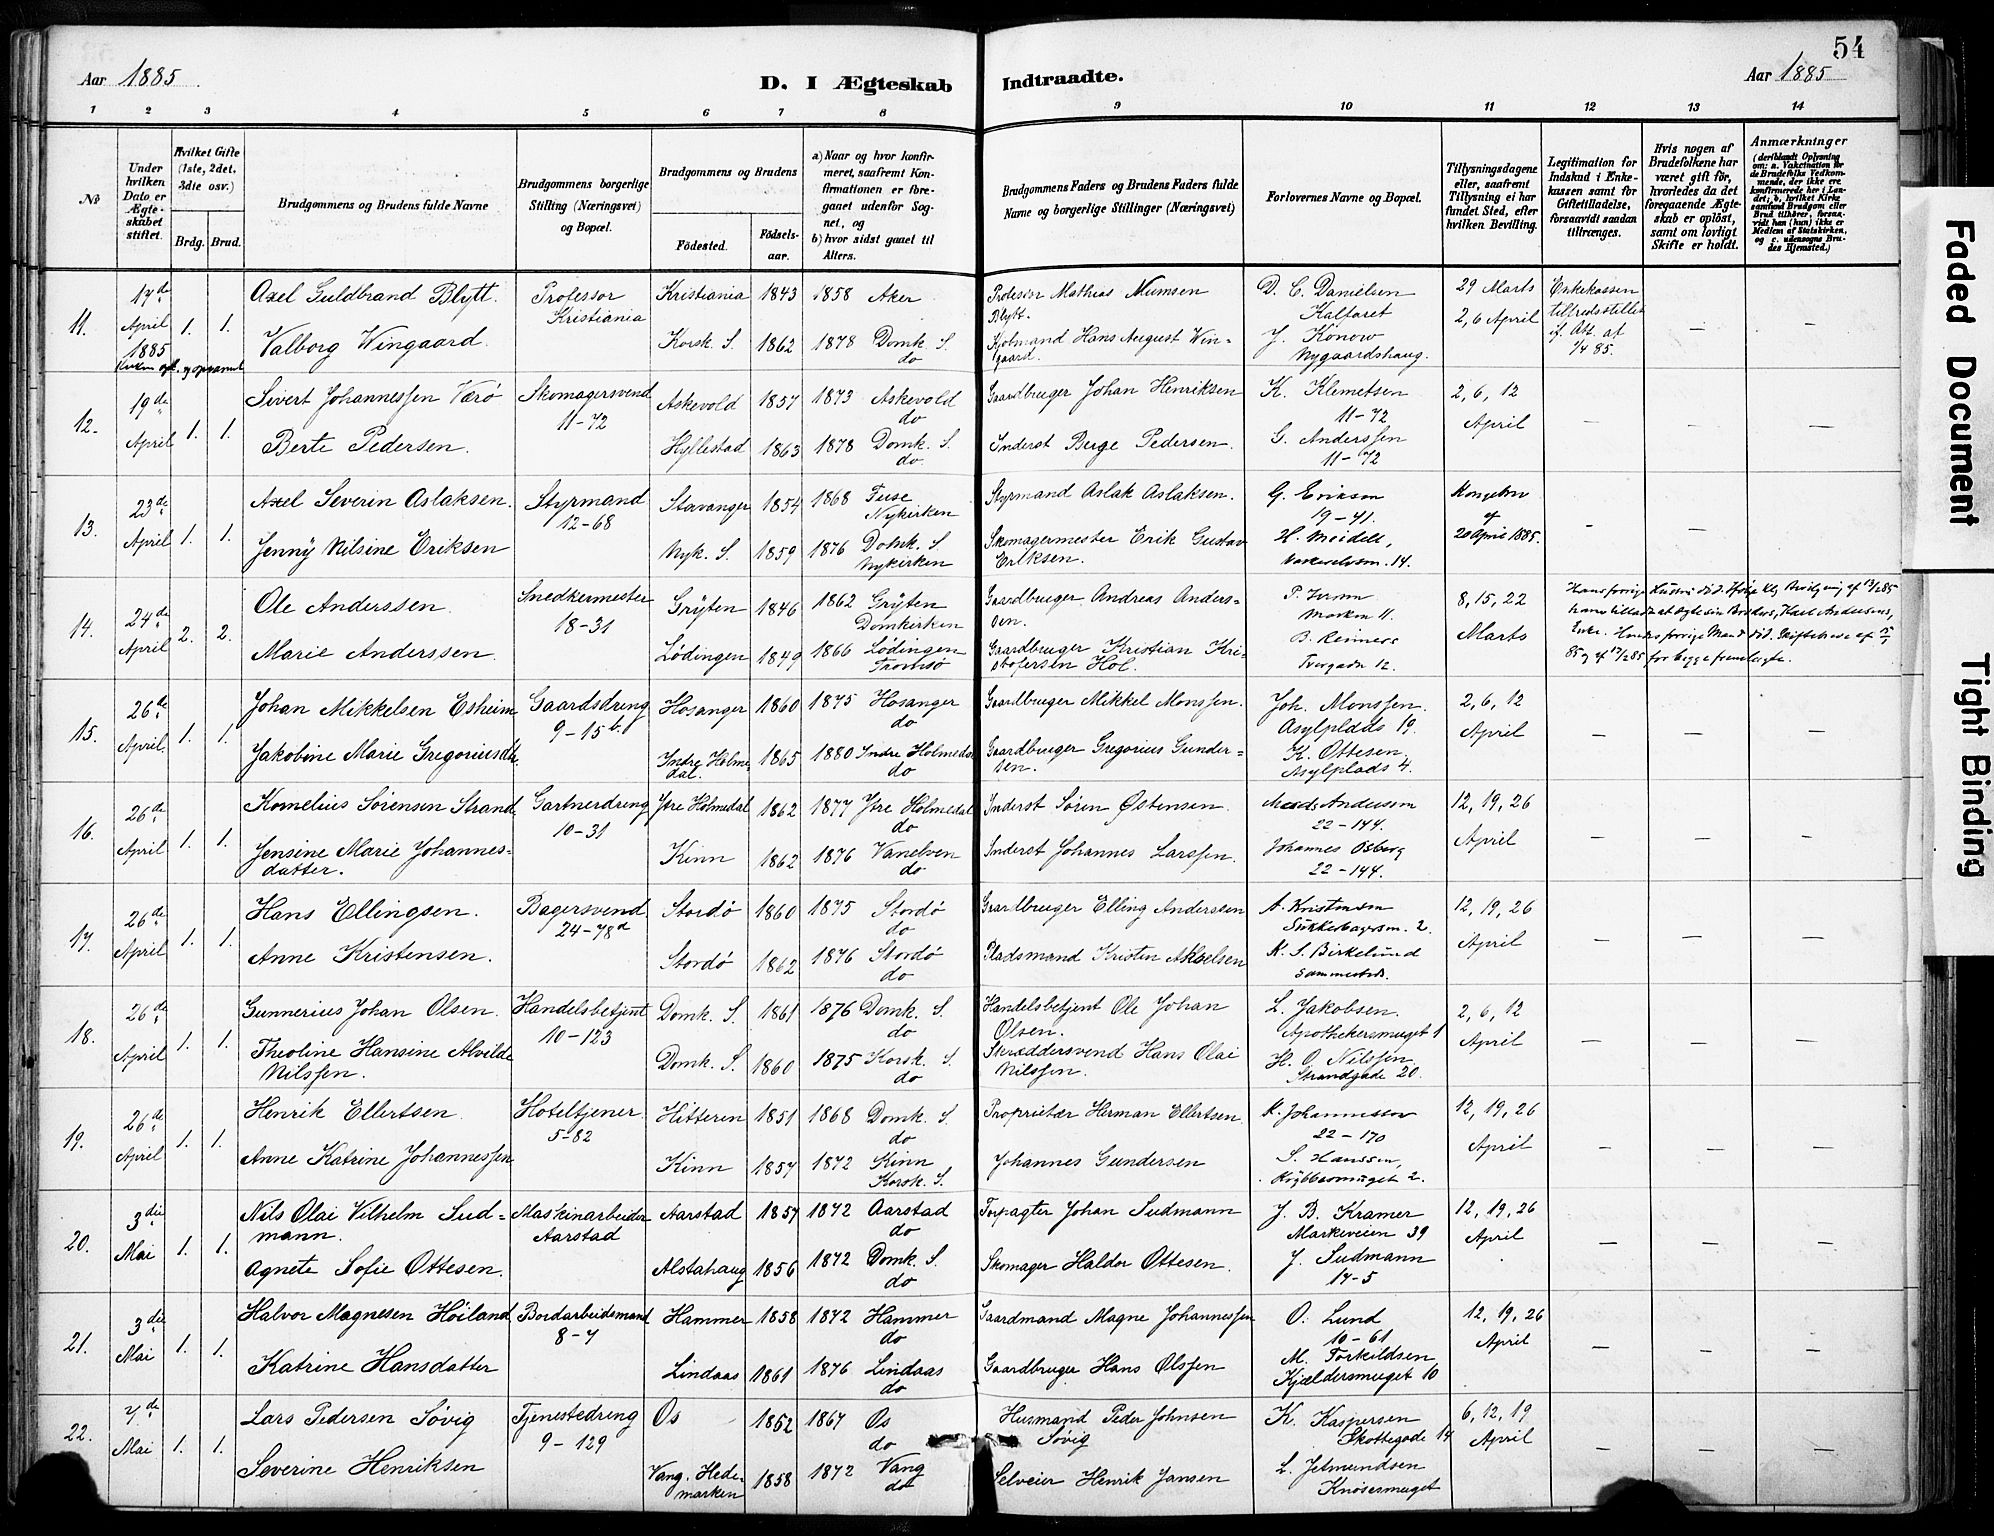 54
Aar 1885
D. I Ægteskab
Indtraadte.
Aar 1885
1 2 3 4 5 6 7 8 9 10 11 12 13 14
No
Under hvilken Dato er Ægteskabet stiftet.
Hvilket Gifte (1ste, 2det, 3die osv.)
Brdg. Brud.
Brudgommens og Brudens fulde Navne
Brudgommens borgerlige Stilling (Næringsvei) og Bopæl.
Brudgommens og Brudens
Fødested.
Fødselsaar.
a) Naar og hvor konfirmeret, saafremt Konfirmationen er foregaaet udenfor Sognet, og
b) hvor sidst gaaet til Alters.
Brudgommens Faders og Brudens Faders fulde Navne og borgerlige Stillinger (Næringsvei)
Forlovernes Navne og Bopæl.
Tillysningsdagene eller, saafremt Tillysning ei har fundet Sted, efter hvilken Bevilling.
Legitimation for Indskud i Enkekassen samt for Giftetilladelse, forsaavidt saadan tiltrænges.
Hvis nogen af Brudefolkene har været gift før, hvorledes da det foregaaende Ægteskab er opløst, samt om lovligt Skifte er holdt.
Anmærkninger
(deriblandt Oplysning om: a. Vakcination for de Brudefolks Vedkommende, der ikke ere konfirmerede her i Landet; b. hvilket Kirkesamfund Brudgom eller Brud tilhører, forsaavidt han (hun) ikke er Medlem af Statskirken, og c. udensogns Brudes Hjemsted.)
11. 17de April 1885 1. 1.
Axel Guldbrand Blytt. Professor Kristiania Kristiania 1843 1858 Aker Professor Mathias Numsen Blytt. D. C. Danielsen Kalfaret 29 Marts Enkekassen tilfredsstillet
Valborg Wingaard. Korsk. S. 1862 1878 Domk. S. do Kjøbmand Hans August Wingaard. J. Konow Nygaardshaug. 2, 6 April if. Att. af 1/4 85. — —
12. 19de April 1. 1.
Sivert Johannessen Værø Skomagersvend 11-72 Askevold 1857 1873 Askevold do Gaardbruger Johan Henriksen K. Klemetsen 11-72 2, 6, 12 April
Berte Pedersen. Hyllestad 1863 1878 Domk. S. do. Inderst Berge Pedersen. G. Anderssen 11-72 — — —
13. 23de April 1. 1.
Axel Severin Aslaksen. Styrmand 12-68 Stavanger 1854 1868 Fuse Nykirken Styrmand Aslak Aslaksen. G. Erikson 19-41. Kongebrev af 20 April 1885.
Jenny Nilsine Eriksen Nyk. S. 1859 1876 Domk. S. Nykirken Skomagermester Erik Gustav Eriksen. H. Meidell, 14. — —
14. 24de April 2. 2.
Ole Anderssen. Snedkermester 18-31 Gryten 1846 1862 Gryten Domkirken Gaardbruger Andreas Andersen. P. Marken 11. 8, 15, 22 Marts
Marie Anderssen. Lødingen 1849 1866 Lødingen Tromsø Gaardbruger Kristian Kristofersen Hol. B. Tvergade 12.
Hans forrige Hustru død. Ifølge Klg. Bevilgning af 13/2 85
han tilladt at ægte sin Broders, Karl Andersens,
Enke. Hendes forrige Mand død. Skifteattest af
85 og af 17/2 85 for begge fremlagte.
15. 26de April. 1. 1.
Johan Mikkelsen Esheim Gaardsdreng 9-15 b. Hosanger 1860 1875 Hosanger do Gaardbruger Mikkel Monssen. Joh. Monssen. Asylplads 19. 2, 6, 12 April
Jakobine Marie Gregoriusdtr. Indre Holmedal. 1865 1880 Indre Holmedal do Gaardbruger Gregorius Gundersen. K. Ottesen, Asylplads 4. — — —
16. 26de April 1. 1.
Kornelius Sørensen Strand. Gartnerdreng 10-31 Ytre Holmedal 1862 1877 Ytre Holmedal do Inderst Søren Østensen. Mads Andersen 22-144. 12, 19, 26 April
Jensine Marie Johannesdatter. Kinn 1862 1876 Vanelven do Inderst Johannes Larssen. Johannes Osberg 22-144. — — —
17. 26de April 1. 1.
Hans Ellingsen. Bagersvend 24-78d Stordø 1860 1875 Stordø do Gaardbruger Elling Anderssen A. Kristensen 2. 12, 19, 26 April
Anne Kristensen. Stordø 1862 1876 Stordø do Pladsmand Kristen Akselsen K. S. Birkelund sammesteds. — — —
18. 26de April 1. 1.
Gunnerius Johan Olsen. Handelsbetjent 10-123 Domk. S. 1861 1876 Domk. S. do Handelsbetjent Ole Johan Olsen. L. Jakobsen. Apothekersmuget 1 2, 6, 12 April
Theoline Hansine Alvilde Nilssen. Domk. S. 1860 1875 Korsk. S. do Skræddersvend Hans Olai Nilssen. H. O. Nilssen Strandgade 20. — — —
19. 26de April 1. 1.
Henrik Ellertsen. Hoteltjener 5-82 Hitteren 1851 1868 Domk. S. do Proprietær Herman Ellertsen K. Johannessen 22-170 12, 19, 26 April
Anne Katrine Johannessen Kinn 1857 1872 Kinn Korsk. S. Johannes Gundersen S. Hanssen, Krybbesmuget 2. — — —
20. 3die Mai 1. 1.
Nils Olai Vilhelm Sudmann. Maskinarbeider Aarstad Aarstad 1857 1872 Aarstad do Forpagter Johan Sudmann J. B. Kramer Markeveien 39 12, 19, 26 April
Agnete Sofie Ottesen. Alstahaug 1856 1872 Domk. S. do Skomager Haldor Ottesen. J. Sudmann 14-5 — — —
21. 3die Mai 1. 1.
Halvor Magnesen Høiland Bordarbeidsmand 8-7 Hammer 1858 1872 Hammer do Gaardmand Magne Johannessen O. Lund 10-61 12, 19, 26 April
Katrine Hansdatter Lindaas 1861 1876 Lindaas do Gaardbruger Hans Olssen M. Torkildsen Kjældersmuget 10 — — —
22. 7de Mai 1. 1.
Lars Pedersen Søvig Tjenestedreng 9-129 Os 1852 1867 Os do Husmand Peder Johnsen Søvig K. Kaspersen Skottegade 14 6, 12, 19 April
Severine Henriksen Vang. Hedemarken 1858 1872 Vang do Selveier Henrik Jansen L. Jetmundsen Knøsesmuget — — —
Faded Document
Tight Binding